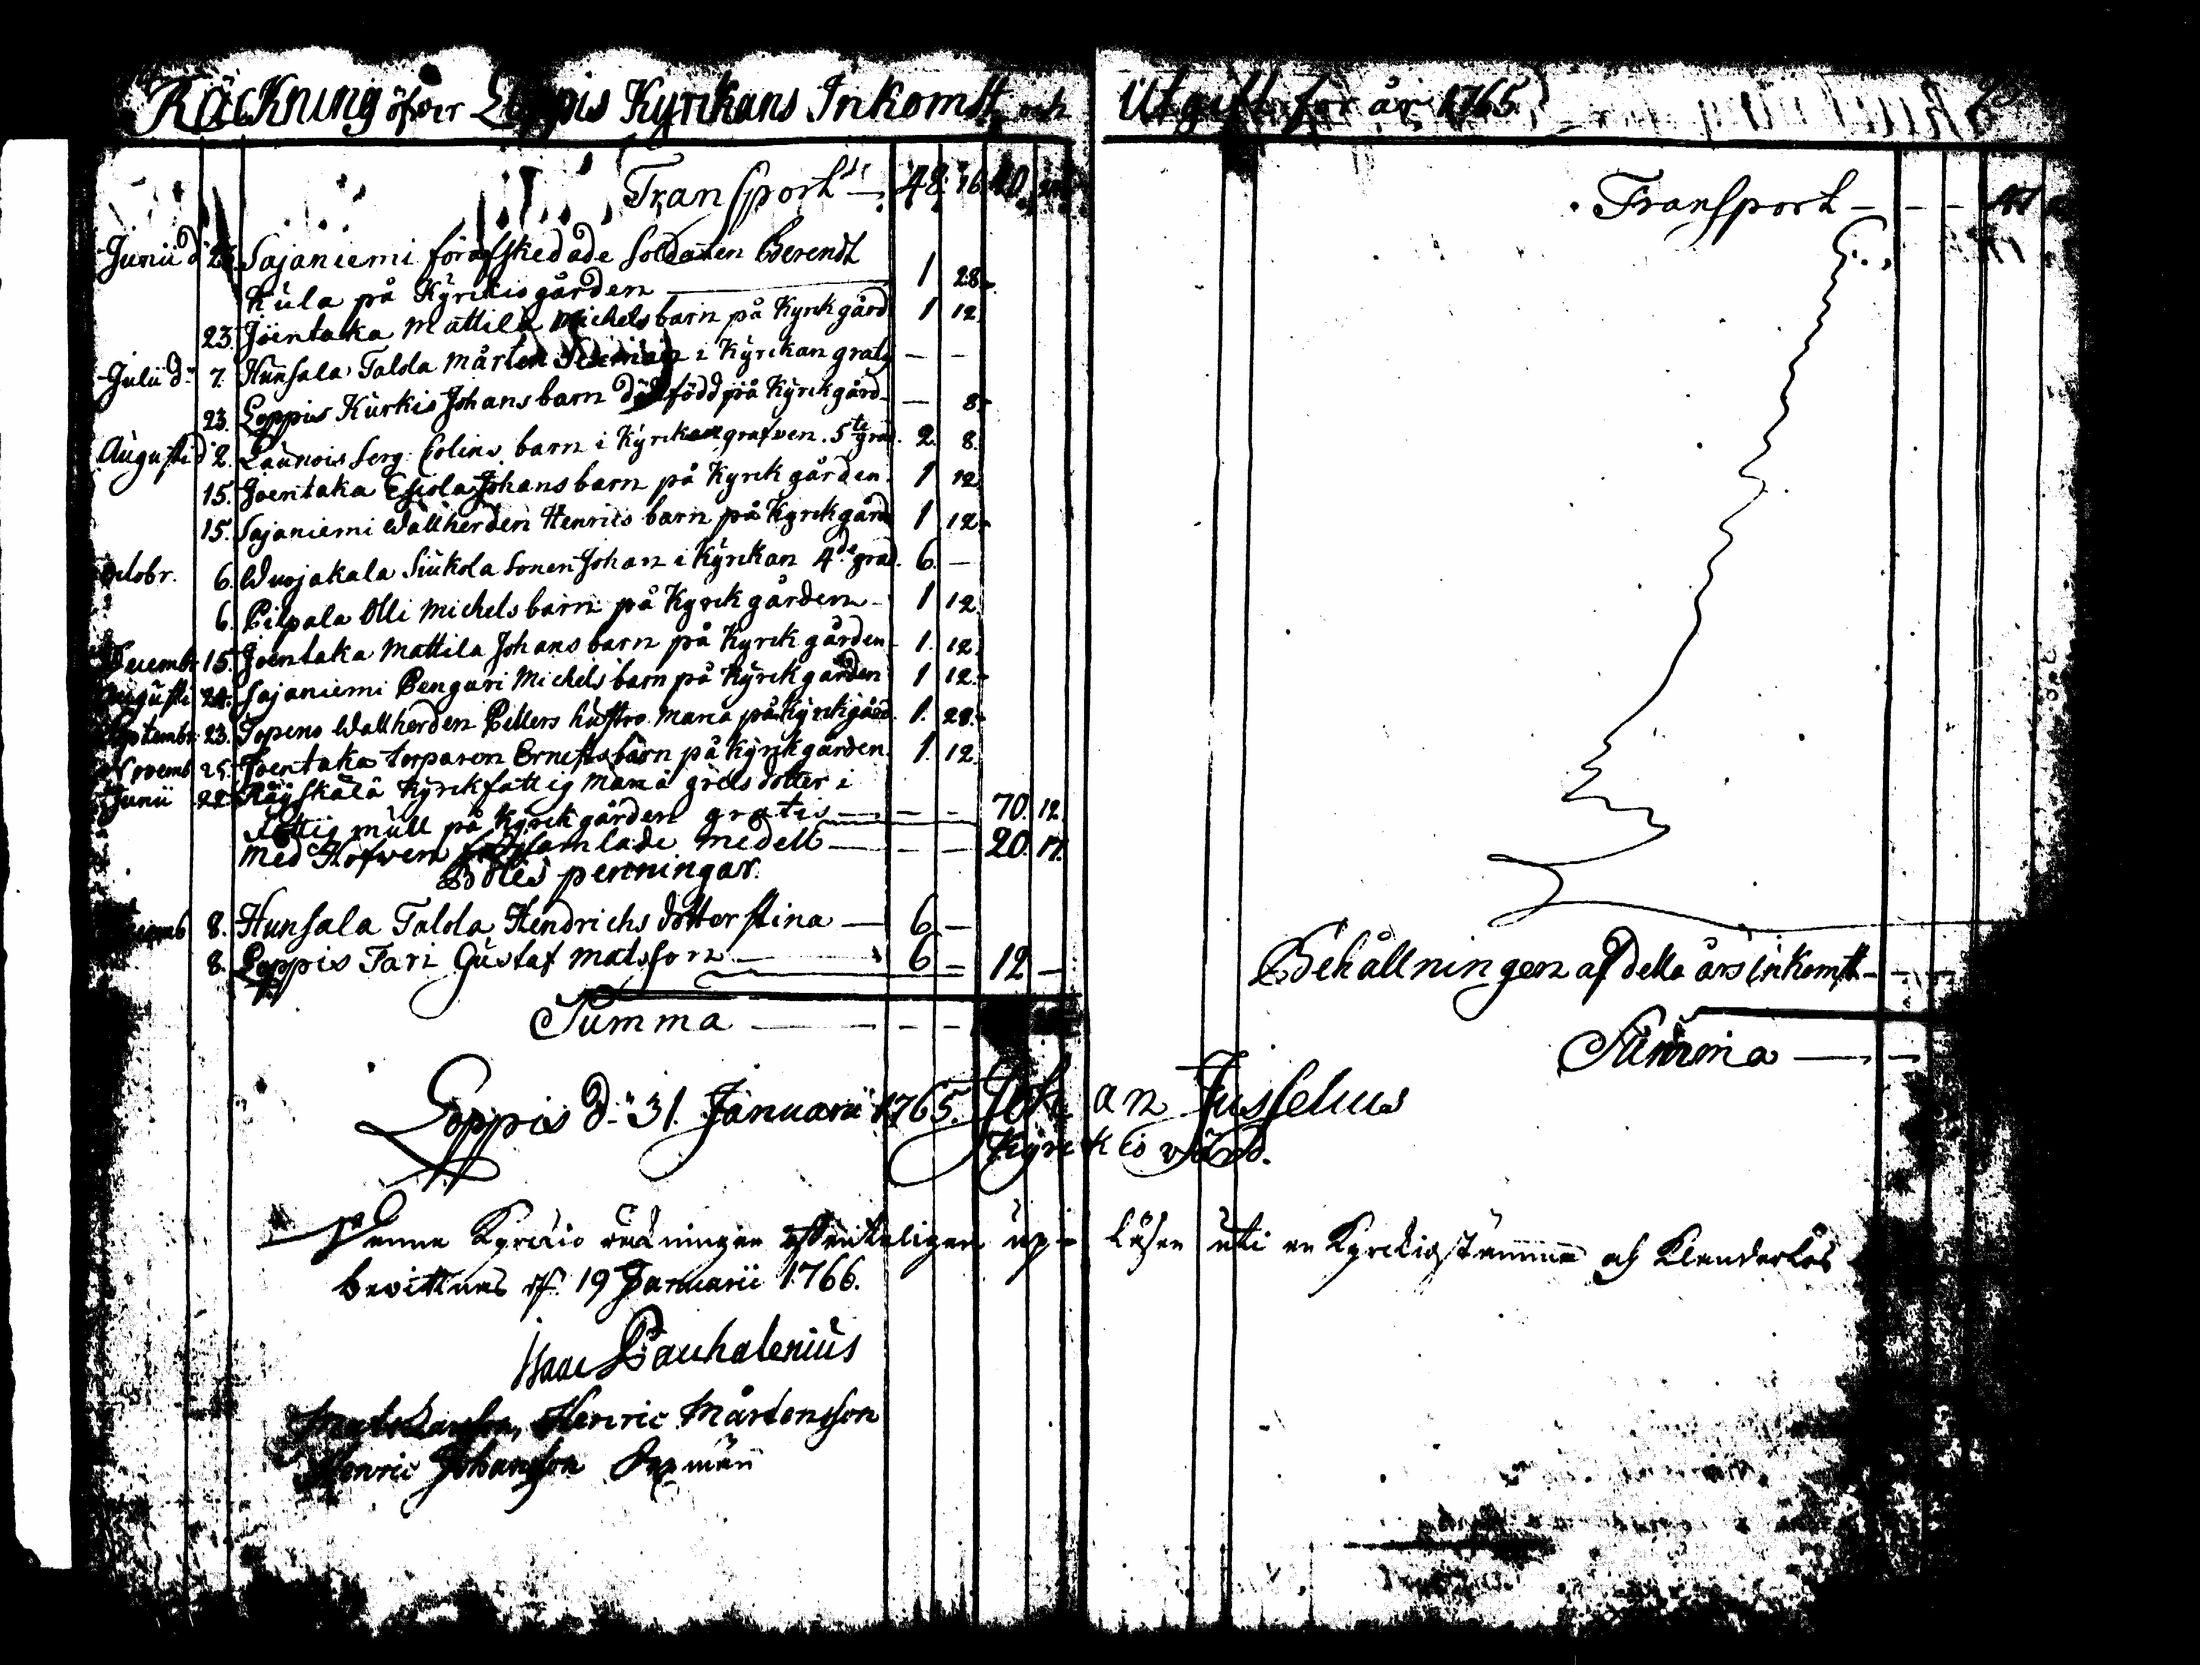 Räckning öfwer Loppis Kyrckans Inkomst och Utgift för år 1765.
Transport — 48. 16. 40.
Junii d. Sajaniemi förafskedade Soldaten Berendt
Kula på Kyrckiogården — 1 28.
23. Joentaka Mattila Michels barn på Kyrckgård 1 12.
Julii d. 7. Hunsala Talola Mårten i Kyrckan gratis — —
23. Loppis Kurkis Johans barn dödfödd på Kyrckgård — 8.
Augusti d. 2. Launois Serg. Colins barn i Kyrckan grafven. 5te grad. 2. 8.
15. Joentaka Eskola Johans barn på Kyrckgården. 1 12.
15. Sajaniemi Wallherden Henrics barn på Kyrckgård 1 12.
Octobr. 6. Wuojakala Siukola Sonen Johan i Kyrckan 4de grad. 6. —
6. Pilpala Olli Michels barn på Kyrckgården — 1 12.
Decemb. 15. Joentaka Mattila Johans barn på Kyrckgården 1. 12.
Augusti 24. Sajaniemi Penguri Michels barn på Kyrckgården 1 12.
Septembr. 23. Topeno Wallherden Petters hustro Maria på Kyrckgård. 1. 28.
Novemb. 25. Joentaka torparen Ernests barn på Kyrckgården. 1. 12.
Junii 22. Räyskälä Kyrckfattig Maria grels dotter i
fattig mull på Kyrckgården gratis — — — 70. 12.
Med Hofwen samlade medell — — — 20. 17.
Böles penningar.
8. Hunsala Talola Hendrichs dotter Stina — 6 —
8. Loppis Tari Gustaf Matsson — 6 — 12 —
Summa — — —
Transport — — —
Behållningen af detta års inkomst — — —
Summa — —
Loppis d. 31. Januarii 1765. Johan Jusselius
Kyrckio wärd.
Denne Kyrckio räckningen offenteligen up- läsen uti en Kyrckiostämma och Klanderlös
bevittnas af. 19 Januarii 1766.
Isaac Pauhalenius
Mats Larsson, Henric Mårtensson
Henric Johansson Sexmän